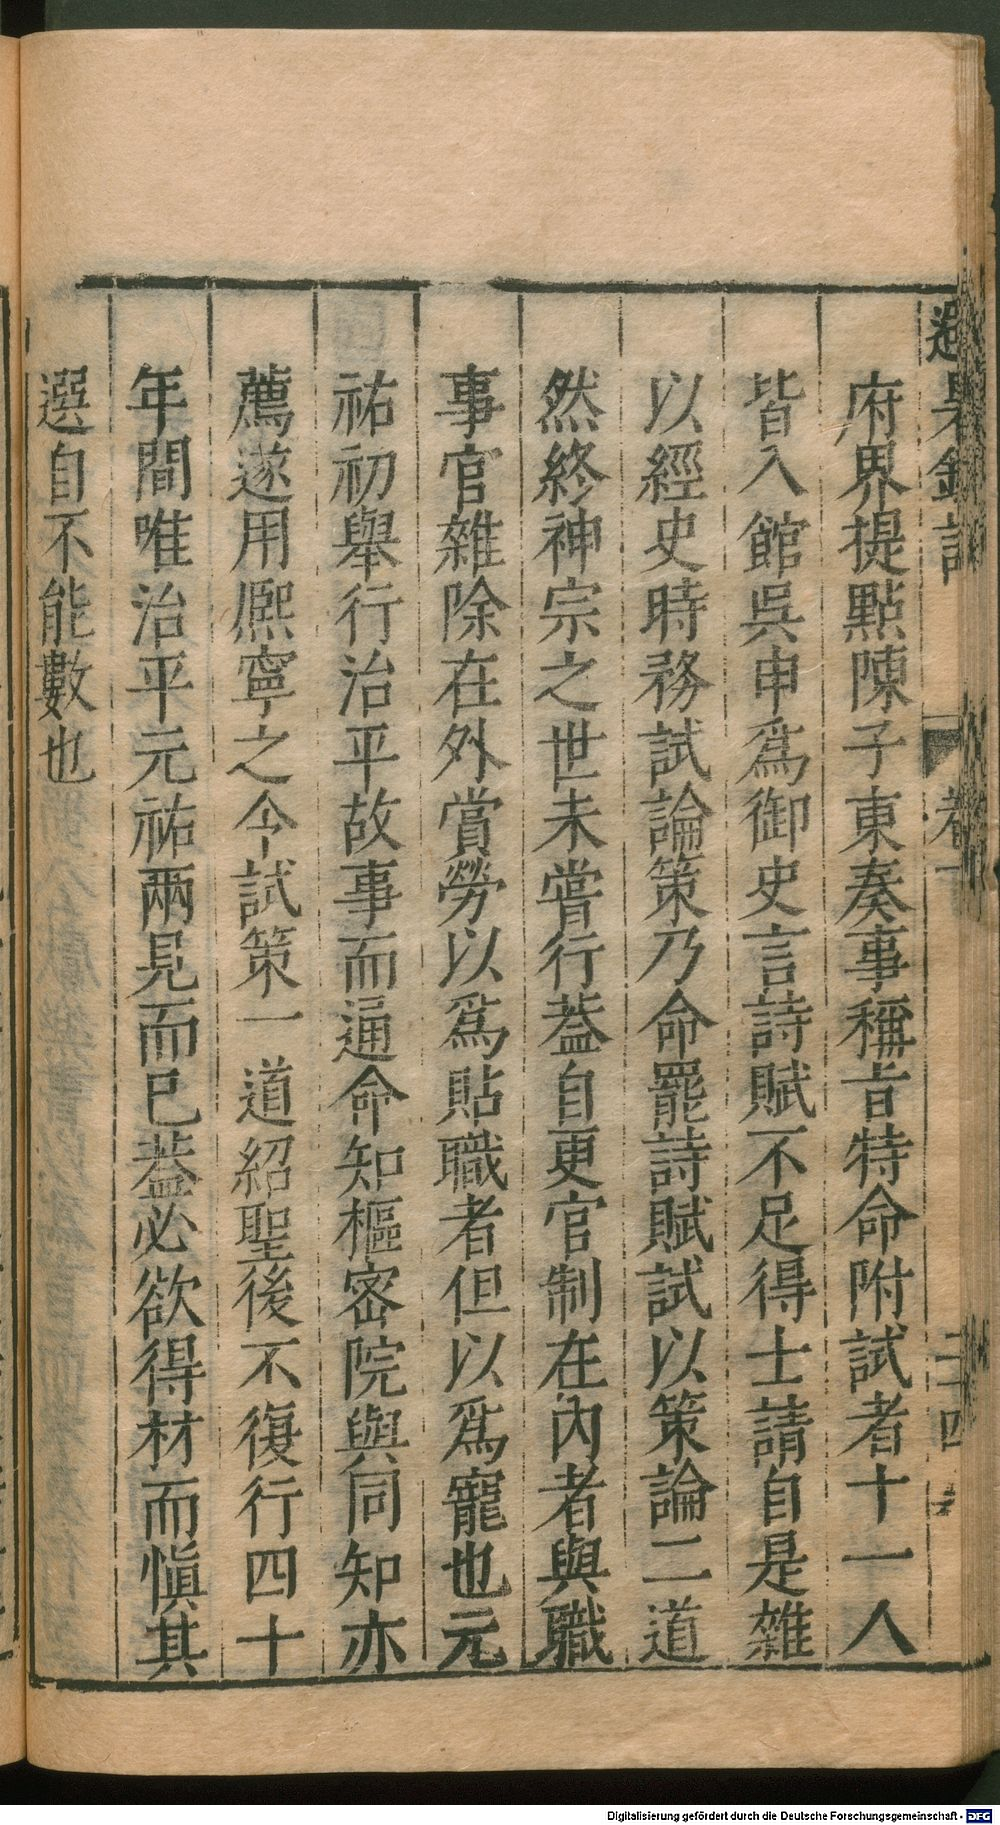 府界提點陳子東奏事稱旨特命附試者十一人
皆入館吳申爲御史言詩賦不足得士請自是雜
以經史時務試論策乃命罷詩賦試以策論二道
然終神宗之世未嘗行葢自更官制在內者與職
事官雜除在外賞勞以爲貼職者但以爲寵也元
祐初舉行治平故事而逼命知樞密院與同知亦
薦遂用熈寧之今試策一道紹聖後不復行四十
年間唯治平元祐兩見而已葢必欲得材而愼其
選自不能數也
Digitalisierung gefördert durch die Deutsche Forschungsgemeinschaft - DFG